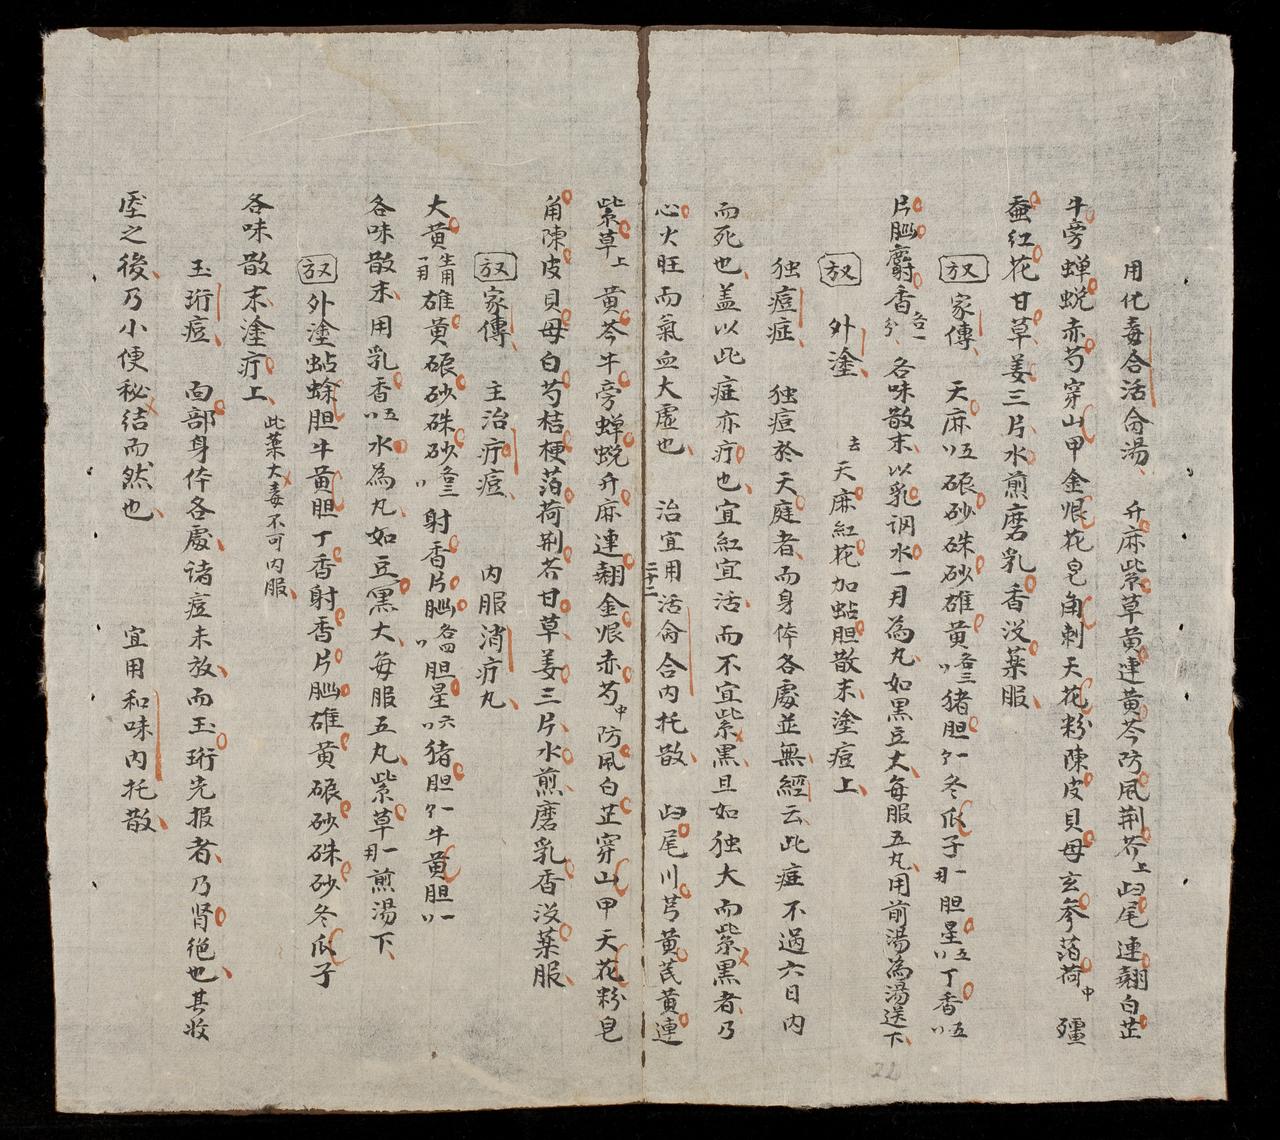 用化毒合活侖湯 升麻紫草黃連黃芩防風荆芥上㱕尾連翹白芷
牛旁蟬蛻赤芍穿山甲金㫰花皂角刺天花粉陳皮貝母玄參萡荷中 殭
蚕紅花甘草姜三片水煎磨乳香没藥服
㪅 家傳 天麻五𠆤硍砂硃砂雄黃各三𠆤猪胆一个冬瓜子一月胆星五𠆤丁香五𠆤
片腦麝香各一分 各味散末以乳调水一月為丸如黑豆大每服五丸用前湯為湯送下
㪅 外塗 去天麻紅花加蛅胆散末塗痘上
独痘症 独痘於天庭者而身体各處並無經云此症不過六日内
而死也盖以此症亦疔也宜紅宜活而不宜紫黑且如独大而紫黑者乃
心火旺而氣血大虛也 治宜用活侖合内托散 㱕尾川芎黃芪黃連
二十二
紫草上 黃芩牛旁蟬蛻升麻連翹金㫰赤芍中防風白芷穿山甲天花粉皂
角陳皮貝母白芍桔梗萡荷荆芥甘草姜三片水煎磨乳香没藥服
㪅 家傳 主治疔痘 内服消疔丸
大黃生用一月雄黃硍砂硃砂各三𠆤射香片腦各四𠆤胆星六𠆤猪胆一个牛黃胆一𠆤
各味散末用乳香五𠆤水為丸如豆黑大每服五丸紫草一月煎湯下
㪅 外塗蛅蜍胆牛黃胆丁香射香片腦雄黃硍砂硃砂冬瓜子
各味散末塗疔上 此藥大毒不可内服
玉珩痘 面部身体各處诸痘未放而玉珩先报者乃肾绝也其收
𭏟之後乃小便秘结而然也 宜用和味内托散
22